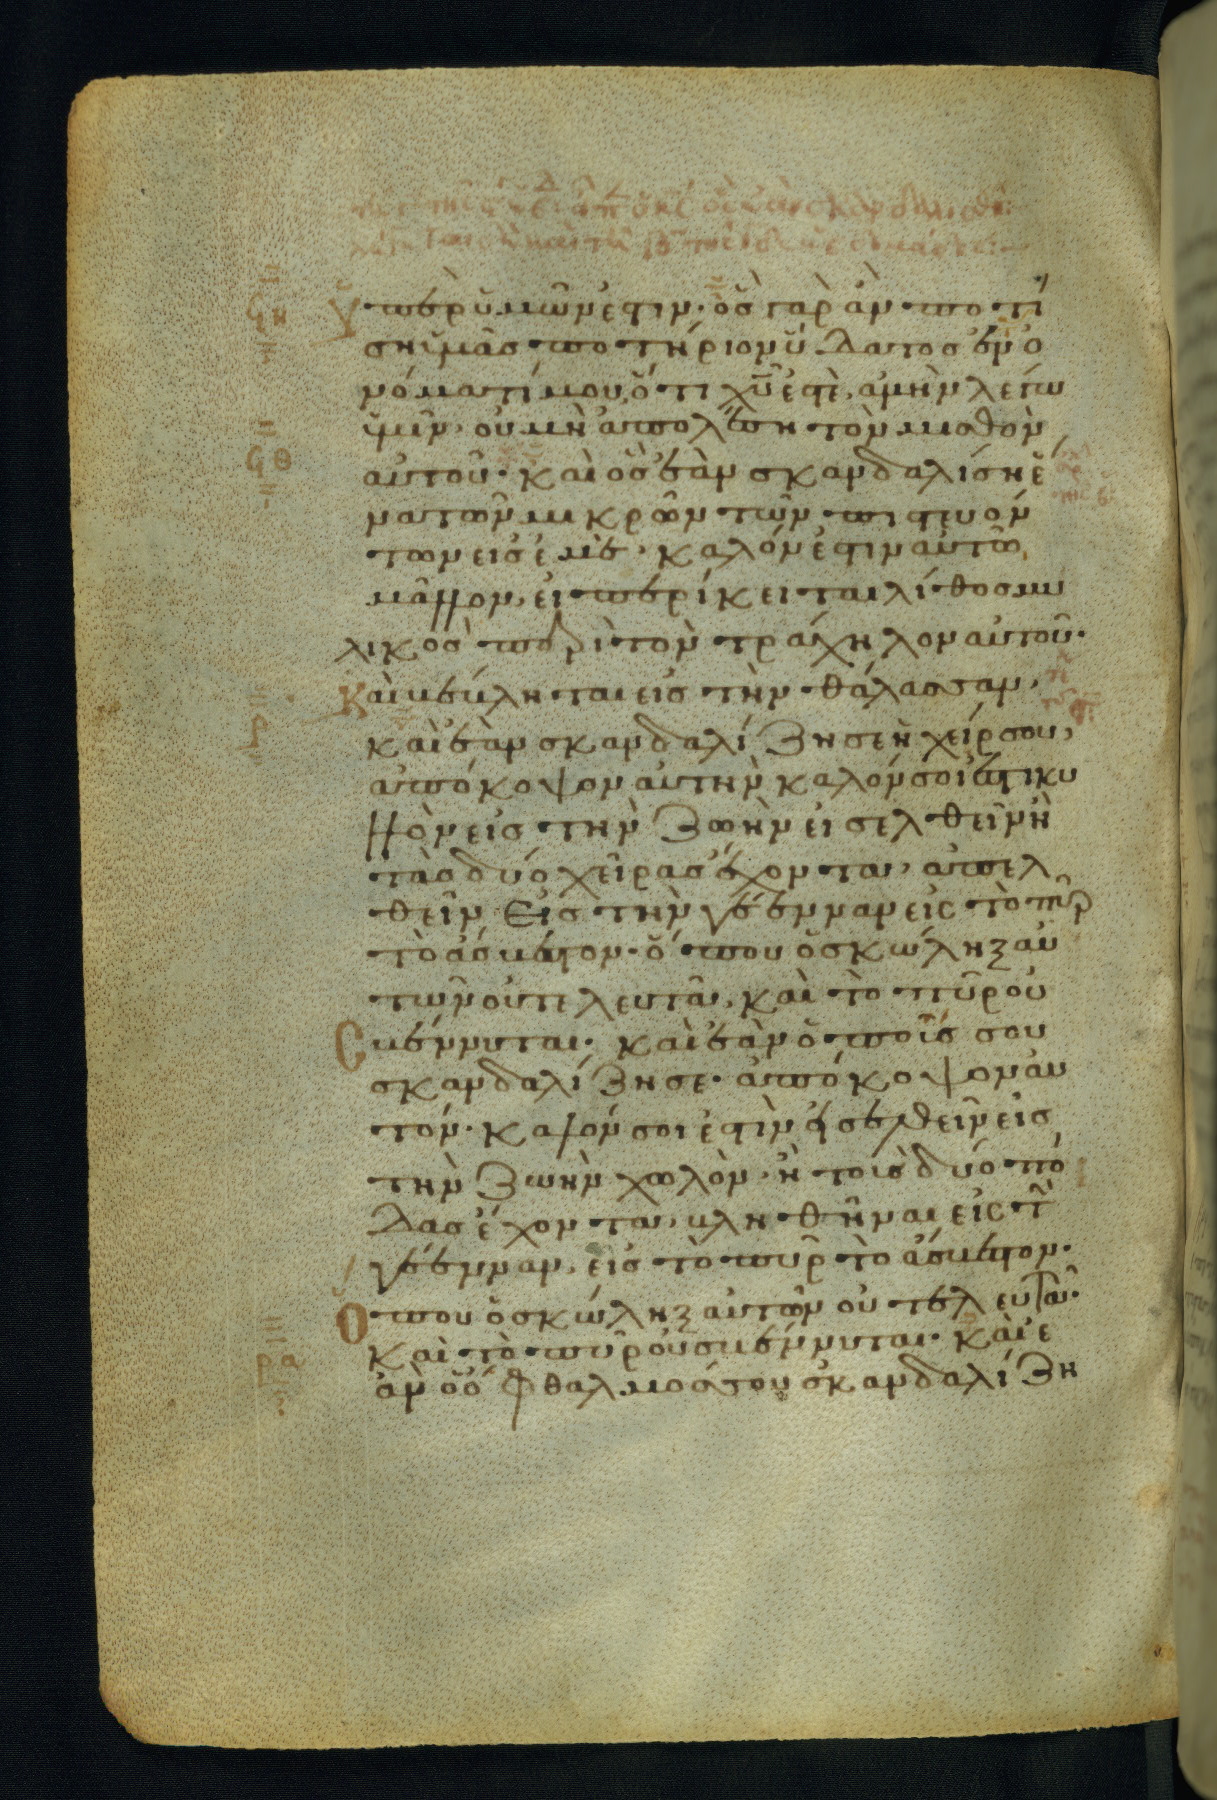 ϟη
ὑπὲρ ὑμῶν ἐστιν· ὃς γὰρ ἂν ποτί
σῃ ὑμᾶς ποτήριον ὕδατος ἐν ὀ
νόματί μου, ὅτι χῦ ἐστὲ, ἀμὴν λέγω
ὑμῖν, οὐ μὴ ἀπολέση τὸν μισθὸν
ϟθ
αὐτοῦ· καὶ ὃς ἐὰν σκανδαλίση ἕ
να τῶν μικρῶν τῶν πιστευόν
των εἰς ἐμὲ, καλόν ἐστιν αὐτῶ
μᾶλλον, εἰ περίκειται λίθος μυ
λικὸς περὶ τὸν τράχηλον αὐτοῦ·
καὶ βέβληται εἰς τὴν θάλασσαν,
ρ
καὶ ἐὰν σκανδαλίζη σε ἡ χείρ σου,
ἀπόκοψον αὐτὴν καλόν σοι ἐστι κυ
λλὸν εἰς τὴν ζωὴν εἰσελθεῖν ἢ
τὰς δύο χεῖρας ἔχοντα, ἀπελ
θεῖν εἰς τὴν γέενναν εἰς τὸ πῦρ
τὸ ἄσβεστον· ὅπου ὁ σκώληξ αὐ
τῶν οὐ τελευτᾶ, καὶ τὸ πῦρ οὐ
σβέννυται· καὶ ἐὰν ὁ ποῦς σου
σκανδαλίζη σε· ἀπόκοψον αὐ
τόν· καλόν σοι ἐστὶν εἰσελθεῖν εἰς
τὴν ζωὴν χωλὸν, ἢ τοὺς δύο πό
δας ἔχοντα, βληθῆναι εἰς τὴν
γέενναν, εἰς τὸ πῦρ τὸ ἄσβεστον·
ὅπου ὁ σκώληξ αὐτῶν οὐ τελευτᾶ·
ρα
καὶ τὸ πῦρ οὐ σβέννυται· καὶ ἐ
ὰν ὁ ὀφθαλμός σου σκανδαλίζη